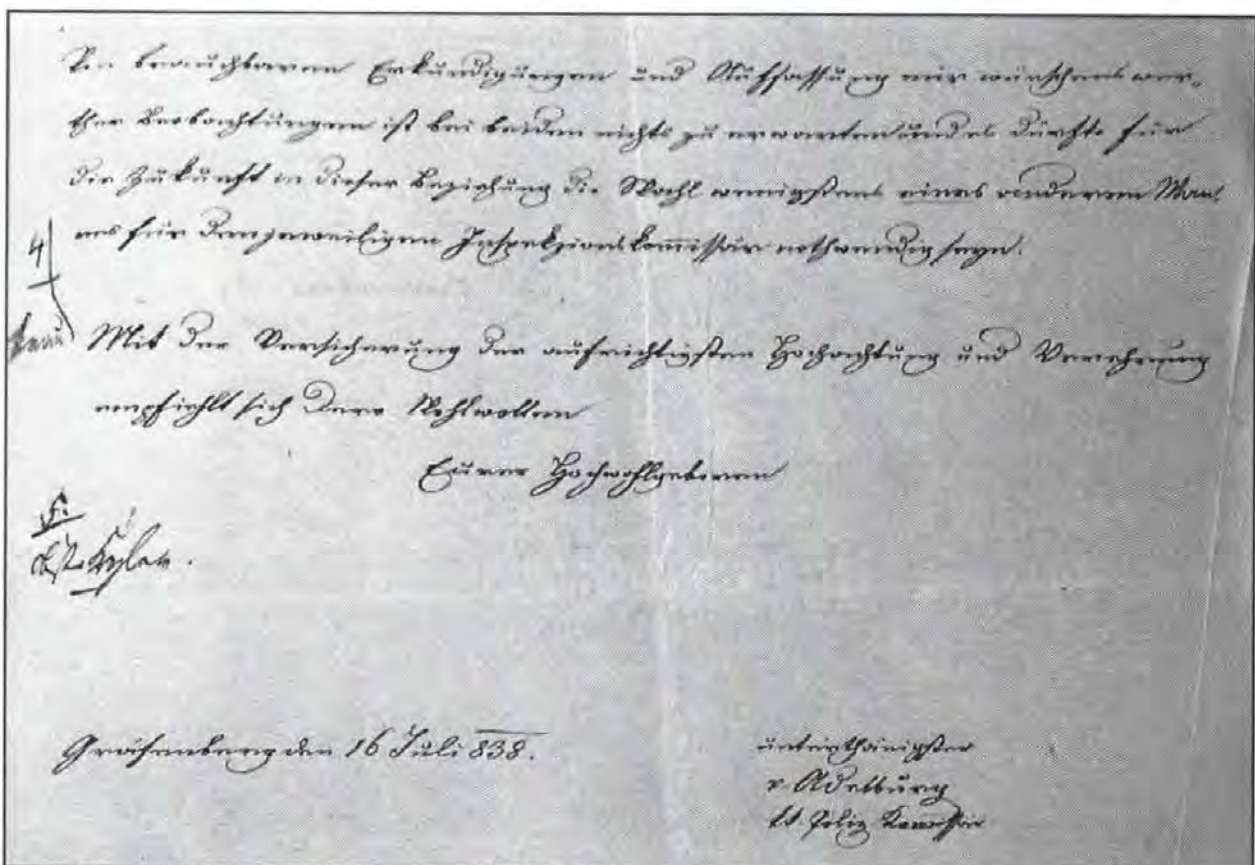 Von brauchbaren Erkundigungen und Auffassung mir wünschenswer-
ther Beobachtungen ist bei beiden nichts zu erwarten und es dürfte für
die Zukunft in dieser Beziehung die Wahl wenigstens eines anderen Man-
nes für den jeweiligen Inspekzionskommissär nothwendig seyn.
4
Mit der Versicherung der aufrichtigsten Hochachtung und Verehrung
empfiehlt sich dero Wohlwollen
Eurer Hochwohlgeboren
Gräfenberg den 16 Juli 838.
unterthänigster
v Adelburg
kk Poliz Kommissär